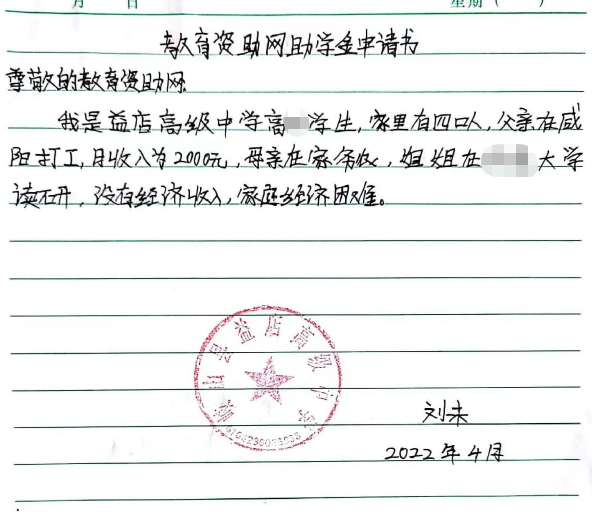 月 日 星期（ ）
教育资助网助学金申请书
尊敬的教育资助网:
我是益店高级中学高 学生，家里有四口人，父亲在咸
阳打工，月收入为2000元，母亲在家务农，姐姐在 大学
读研，没有经济收入，家庭经济困难。
岐山县益店高级中学
刘未
2022年4月